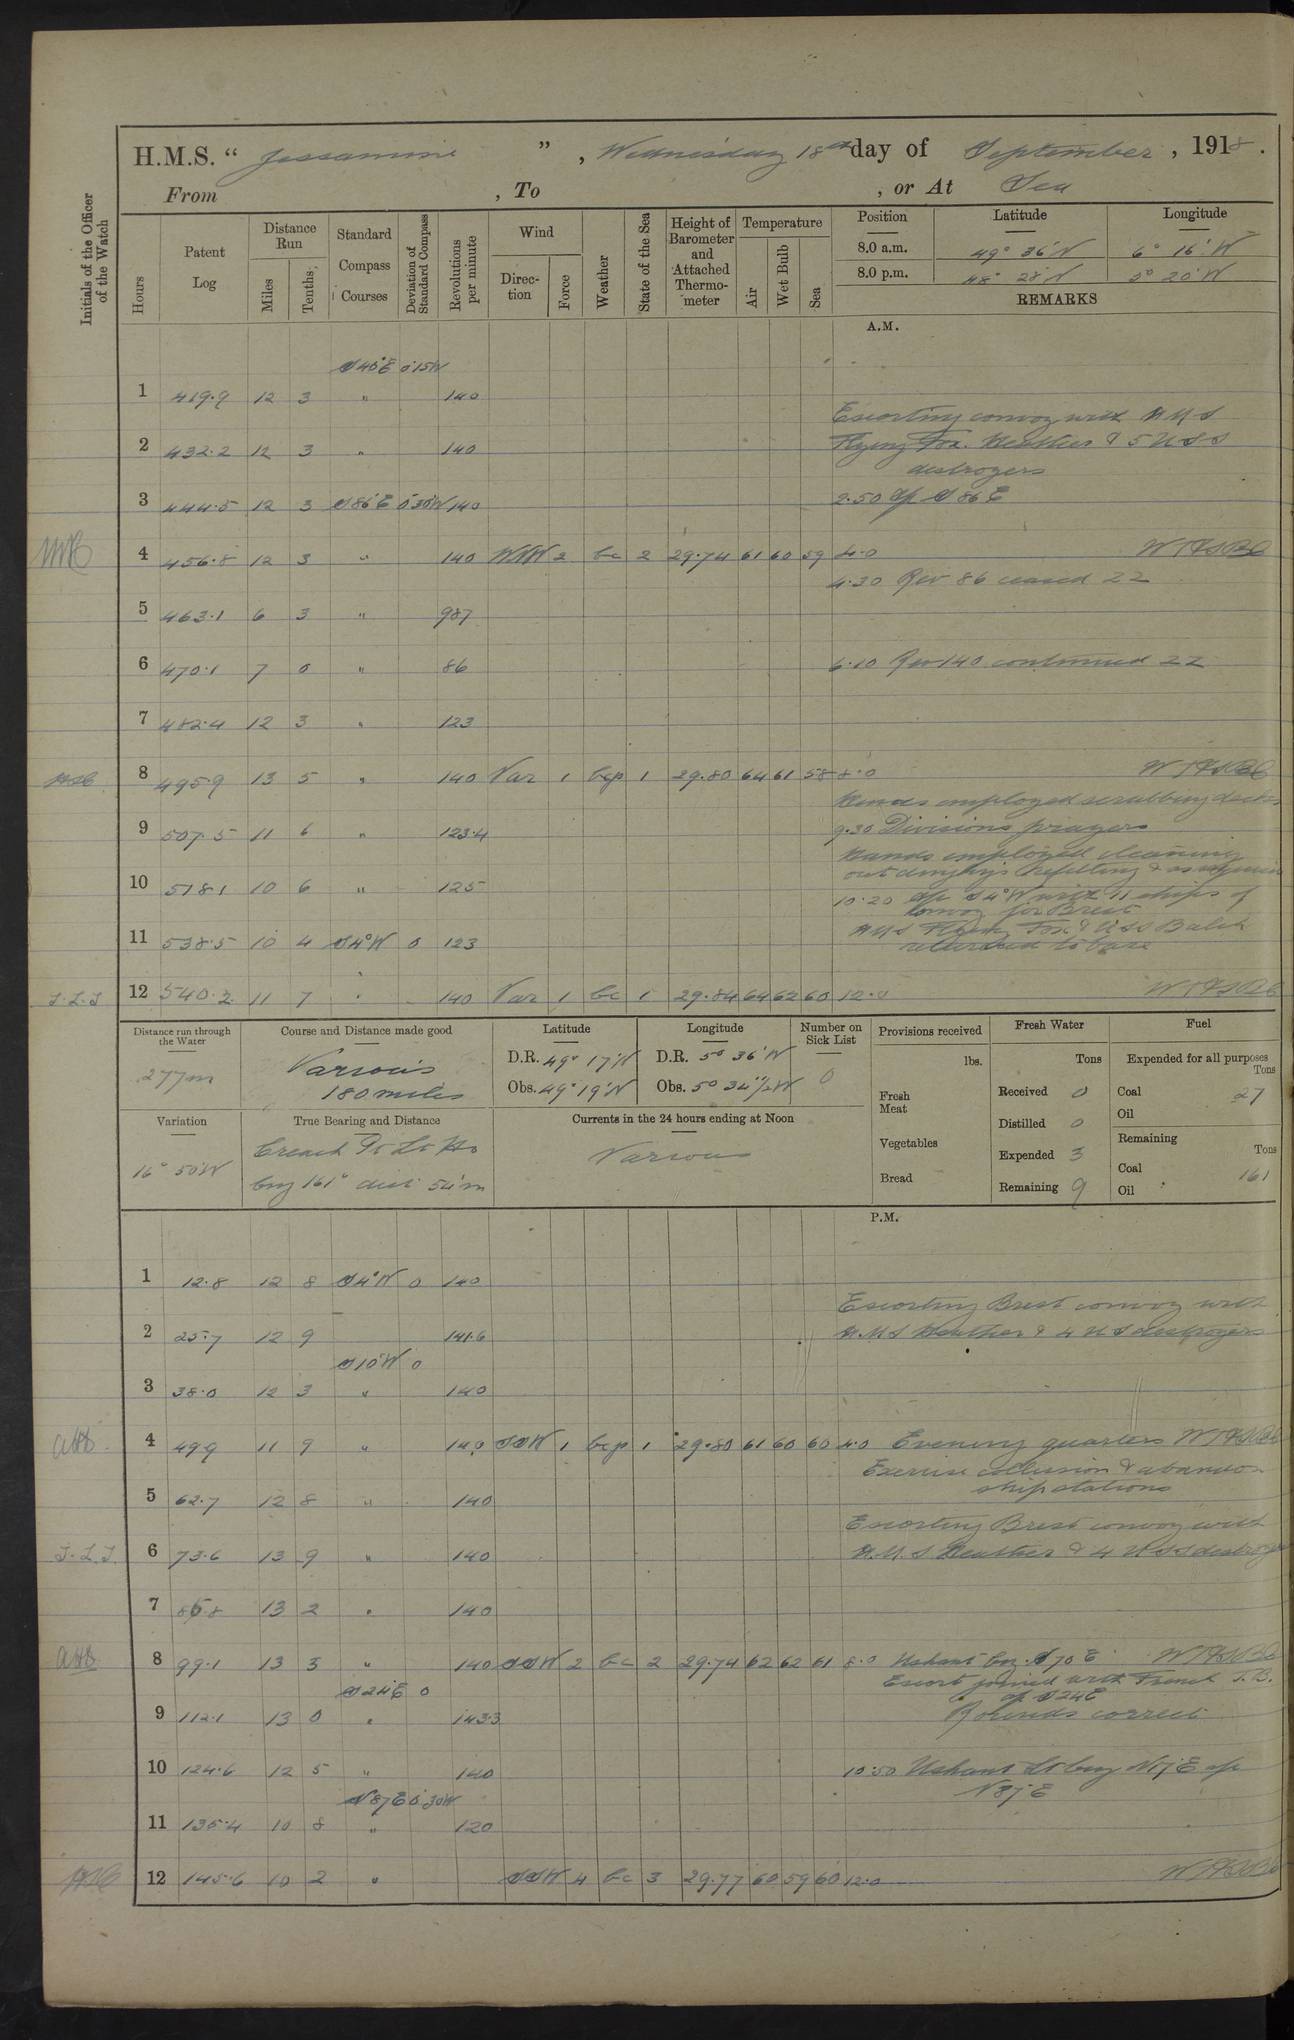 H.M.S. “ Jessamine ” , Wednesday 18th day of September , 1918 .
From , To , or At Sea
Initials of the Officer of the Watch
Hours Patent Log Distance Run Miles Tenths Standard Compass Courses Deviation of Standard Compass Revolutions per minute Wind Direc-tion Force Weather State of the Sea Height of Barometer and Attached Thermo-meter Temperature Air Wet Bulb Sea Position Latitude Longitude
8.0 a.m. 49° 36' N 6° 16' W
8.0 p.m. 48° 28' N 5° 20' W
REMARKS
A.M.
S 40° E 0.15 W
1 419.9 12 3 " 140
Escorting convoy with H M S
2 432.2 12 3 " 140 Flying Fox. Heather & 5 U S S
destroyers
3 444.5 12 3 S 86 E 0 30 W 140 2.50 a/c S 86 E
4 456.8 12 3 " 140 2 bc 2 29.74 61 60 59 4.0
4.30 Rev 86 ceased ZZ
5 463.1 6 3 " 987
6 470.1 7 0 " 86 6.10 Rev 140 continued ZZ
7 482.4 12 3 " 123
8 495.9 13 5 " 140 Var 1 bcp 1 29.80 64 61 58 8.0
Hands employed scrubbing decks
9 507.5 11 6 " 123.4 9.30 Divisions prayers
Hands employed cleaning
10 518.1 10 6 " 125 out dinghys refitting & as requisite
10.20 a/c S 4° W with 11 ships of
convoy for Brest
11 538.5 10 4 S 4° W 0 123 HMS Flying Fox & USS Balch
returned to base
J.L.J 12 540.2 11 7 " 140 Var 1 bc 1 29.84 64 62 60 12.0
Distance run through the Water Course and Distance made good Latitude Longitude Number on Sick List Provisions received Fresh Water Fuel
277m Various 180 miles D.R. 49° 17' N D.R. 5° 36' W 0 lbs. Tons Expended for all purposes Tons
Obs. 49° 19' N Obs. 5° 34 1/2' W Fresh Meat Received 0 Coal 27
Oil
Variation True Bearing and Distance Currents in the 24 hours ending at Noon Distilled 0 Remaining Tons
16° 50' W Creach Pt Lt Ho Various Vegetables Expended 3 Coal 161
brg 161° dist 54' m Bread Remaining 9 Oil
P.M.
1 12.8 12 8 S 4° W 0 140
Escorting Brest convoy with
2 25.7 12 9 141.6 H.M.S Heather & 4 U S destroyers
S 10 W 0
3 38.0 12 3 " 140
4 49.9 11 9 " 140 SSW 1 bcp 1 29.80 61 60 60 4.0 Evening quarters
Exercise collision & abandon
ship stations
5 62.7 12 8 " 140
Escorting Brest convoy with
J.L.J. 6 73.6 13 9 " 140 H.M.S Heather & 4 U S S destroyers
7 85.8 13 2 " 140
8 99.1 13 3 " 140 SSW 2 bc 2 29.74 62 62 61 8.0 Ushant brg. S 70 E
Escort joined with French T.B.
S 24 E 0 a/c S 24 E
9 112.1 13 0 " 143.3 Rounds correct
10 124.6 12 5 " 140 10.50 Ushant Lt brg N 17 E a/c
N 87 E
N 87 E 0.30 W
11 135.4 10 8 " 120
12 145.6 10 2 " SSW 4 bc 3 29.77 60 59 60 12.0